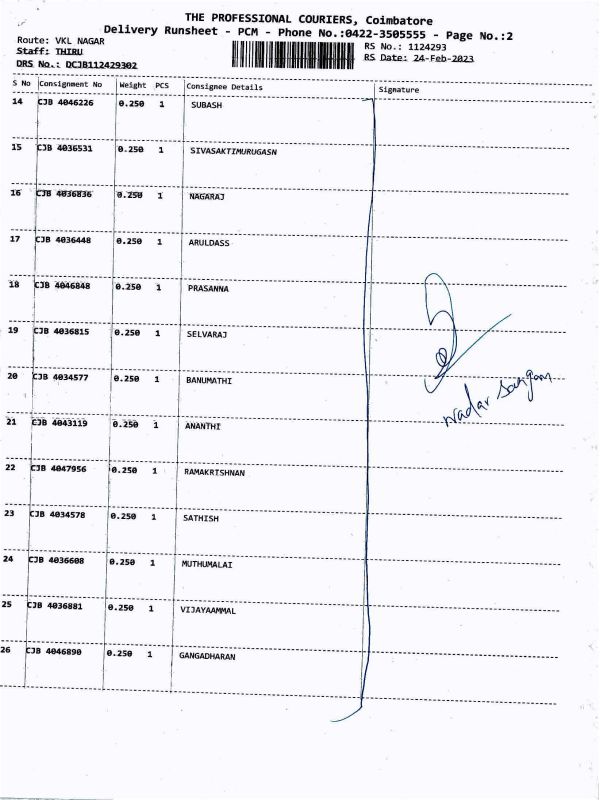 THE PROFESSIONAL COURIERS, Coimbatore
Delivery Runsheet - PCM - Phone No.:0422-3505555 - Page No.:2
Route: VKL NAGAR
RS No.: 1124293
Staff: THIRU
RS Date: 24-Feb-2023
DRS No.: DCJB112429302
S No Consignment No Weight PCS Consignee Details Signature
14 CJB 4046226 0.250 1 SUBASH
15 CJB 4036531 0.250 1 SIVASAKTIMURUGASN
16 CJB 4036836 0.250 1 NAGARAJ
17 CJB 4036448 0.250 1 ARULDASS
18 CJB 4046848 0.250 1 PRASANNA
19 CJB 4036815 0.250 1 SELVARAJ
20 CJB 4034577 0.250 1 BANUMATHI
nadar sangam
21 CJB 4043119 0.250 1 ANANTHI
22 CJB 4047956 0.250 1 RAMAKRISHNAN
23 CJB 4034578 0.250 1 SATHISH
24 CJB 4036608 0.250 1 MUTHUMALAI
25 CJB 4036881 0.250 1 VIJAYAAMMAL
26 CJB 4046890 0.250 1 GANGADHARAN